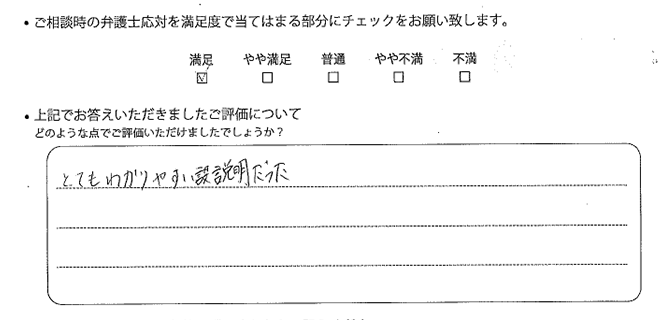 ・ご相談時の弁護士応対を満足度で当てはまる部分にチェックをお願い致します。
満足 やや満足 普通 やや不満 不満
☑ □ □ □ □
・上記でお答えいただきましたご評価について
どのような点でご評価いただけましたでしょうか？
とてもわかりやすい説説明だった